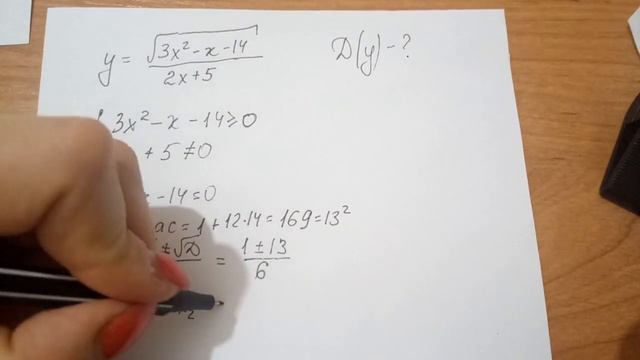 y = √(3x² - x - 14) / (2x + 5) D(y) - ?
3x² - x - 14 ≥ 0
+ 5 ≠ 0
- 14 = 0
ac = 1 + 12·14 = 169 = 13²
± √D = (1 ± 13) / 6
2